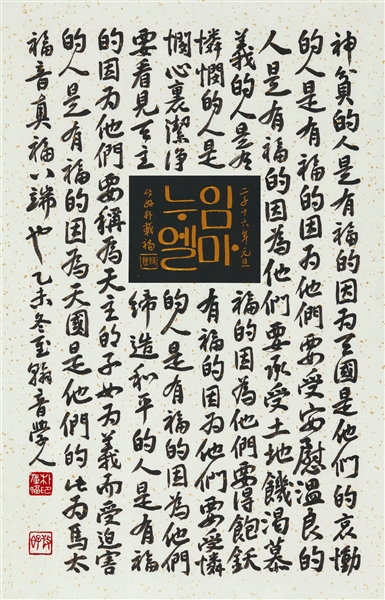 神貧的人是有福的因为天國是他們的哀慟
的人是有福的因为他們要受安慰溫良的
人是有福的因為他們要承受土地饑渴慕
義的人是有
福的因為他們要得飽飫
憐憫的人是
有福的因為他們要受憐
憫心裏潔淨
的人是有福的因為他們
要看見天主
締造和平的人是有福
的因为他們要稱為天主的子女为義而受迫害
的人是有福的因為天國是他們的此为馬太
福音真福八端也 乙未冬至翰音學人
二千十六年元旦
임마
누엘